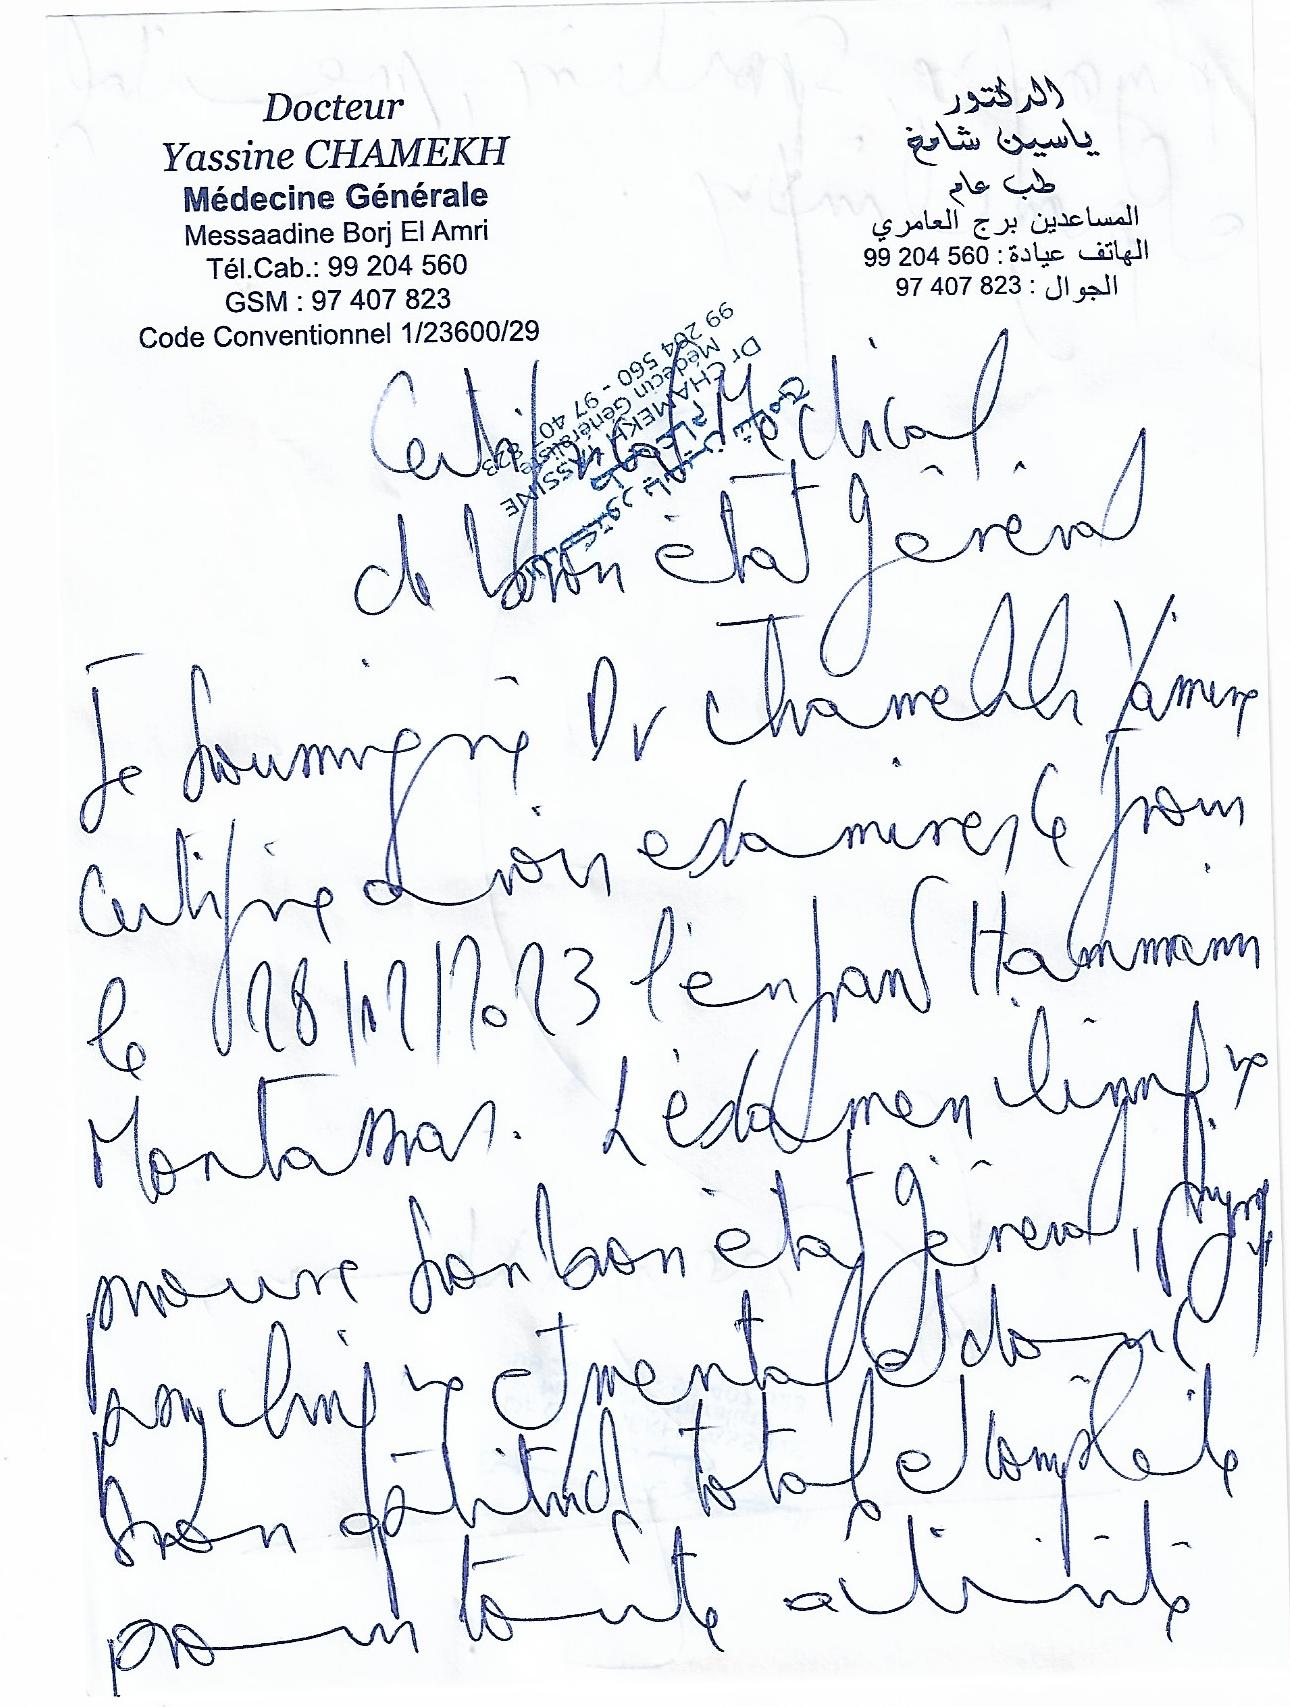 Docteur
Yassine CHAMEKH
Médecine Générale
Messaadine Borj El Amri
Tél.Cab.: 99 204 560
GSM : 97 407 823
Code Conventionnel 1/23600/29
الدكتور
ياسين شامخ
طب عام
المساعدين برج العامري
الهاتف عيادة : 560 204 99
الجوال : 823 407 97
Dr CHAMEKH YASSINE
Médecin Généraliste
99 204 560 - 97 407 823
Certificat Médical
de bon état général
Je soussigné Dr Chamekh Yassine
certifie avoir examiner ce jour
le 28/12/2023 l'enfant Hammami
Montassar. L'examen clinique
prouve son bon état général, physique
psychique et mental et donc
son aptitude totale et complète
pour toute activité